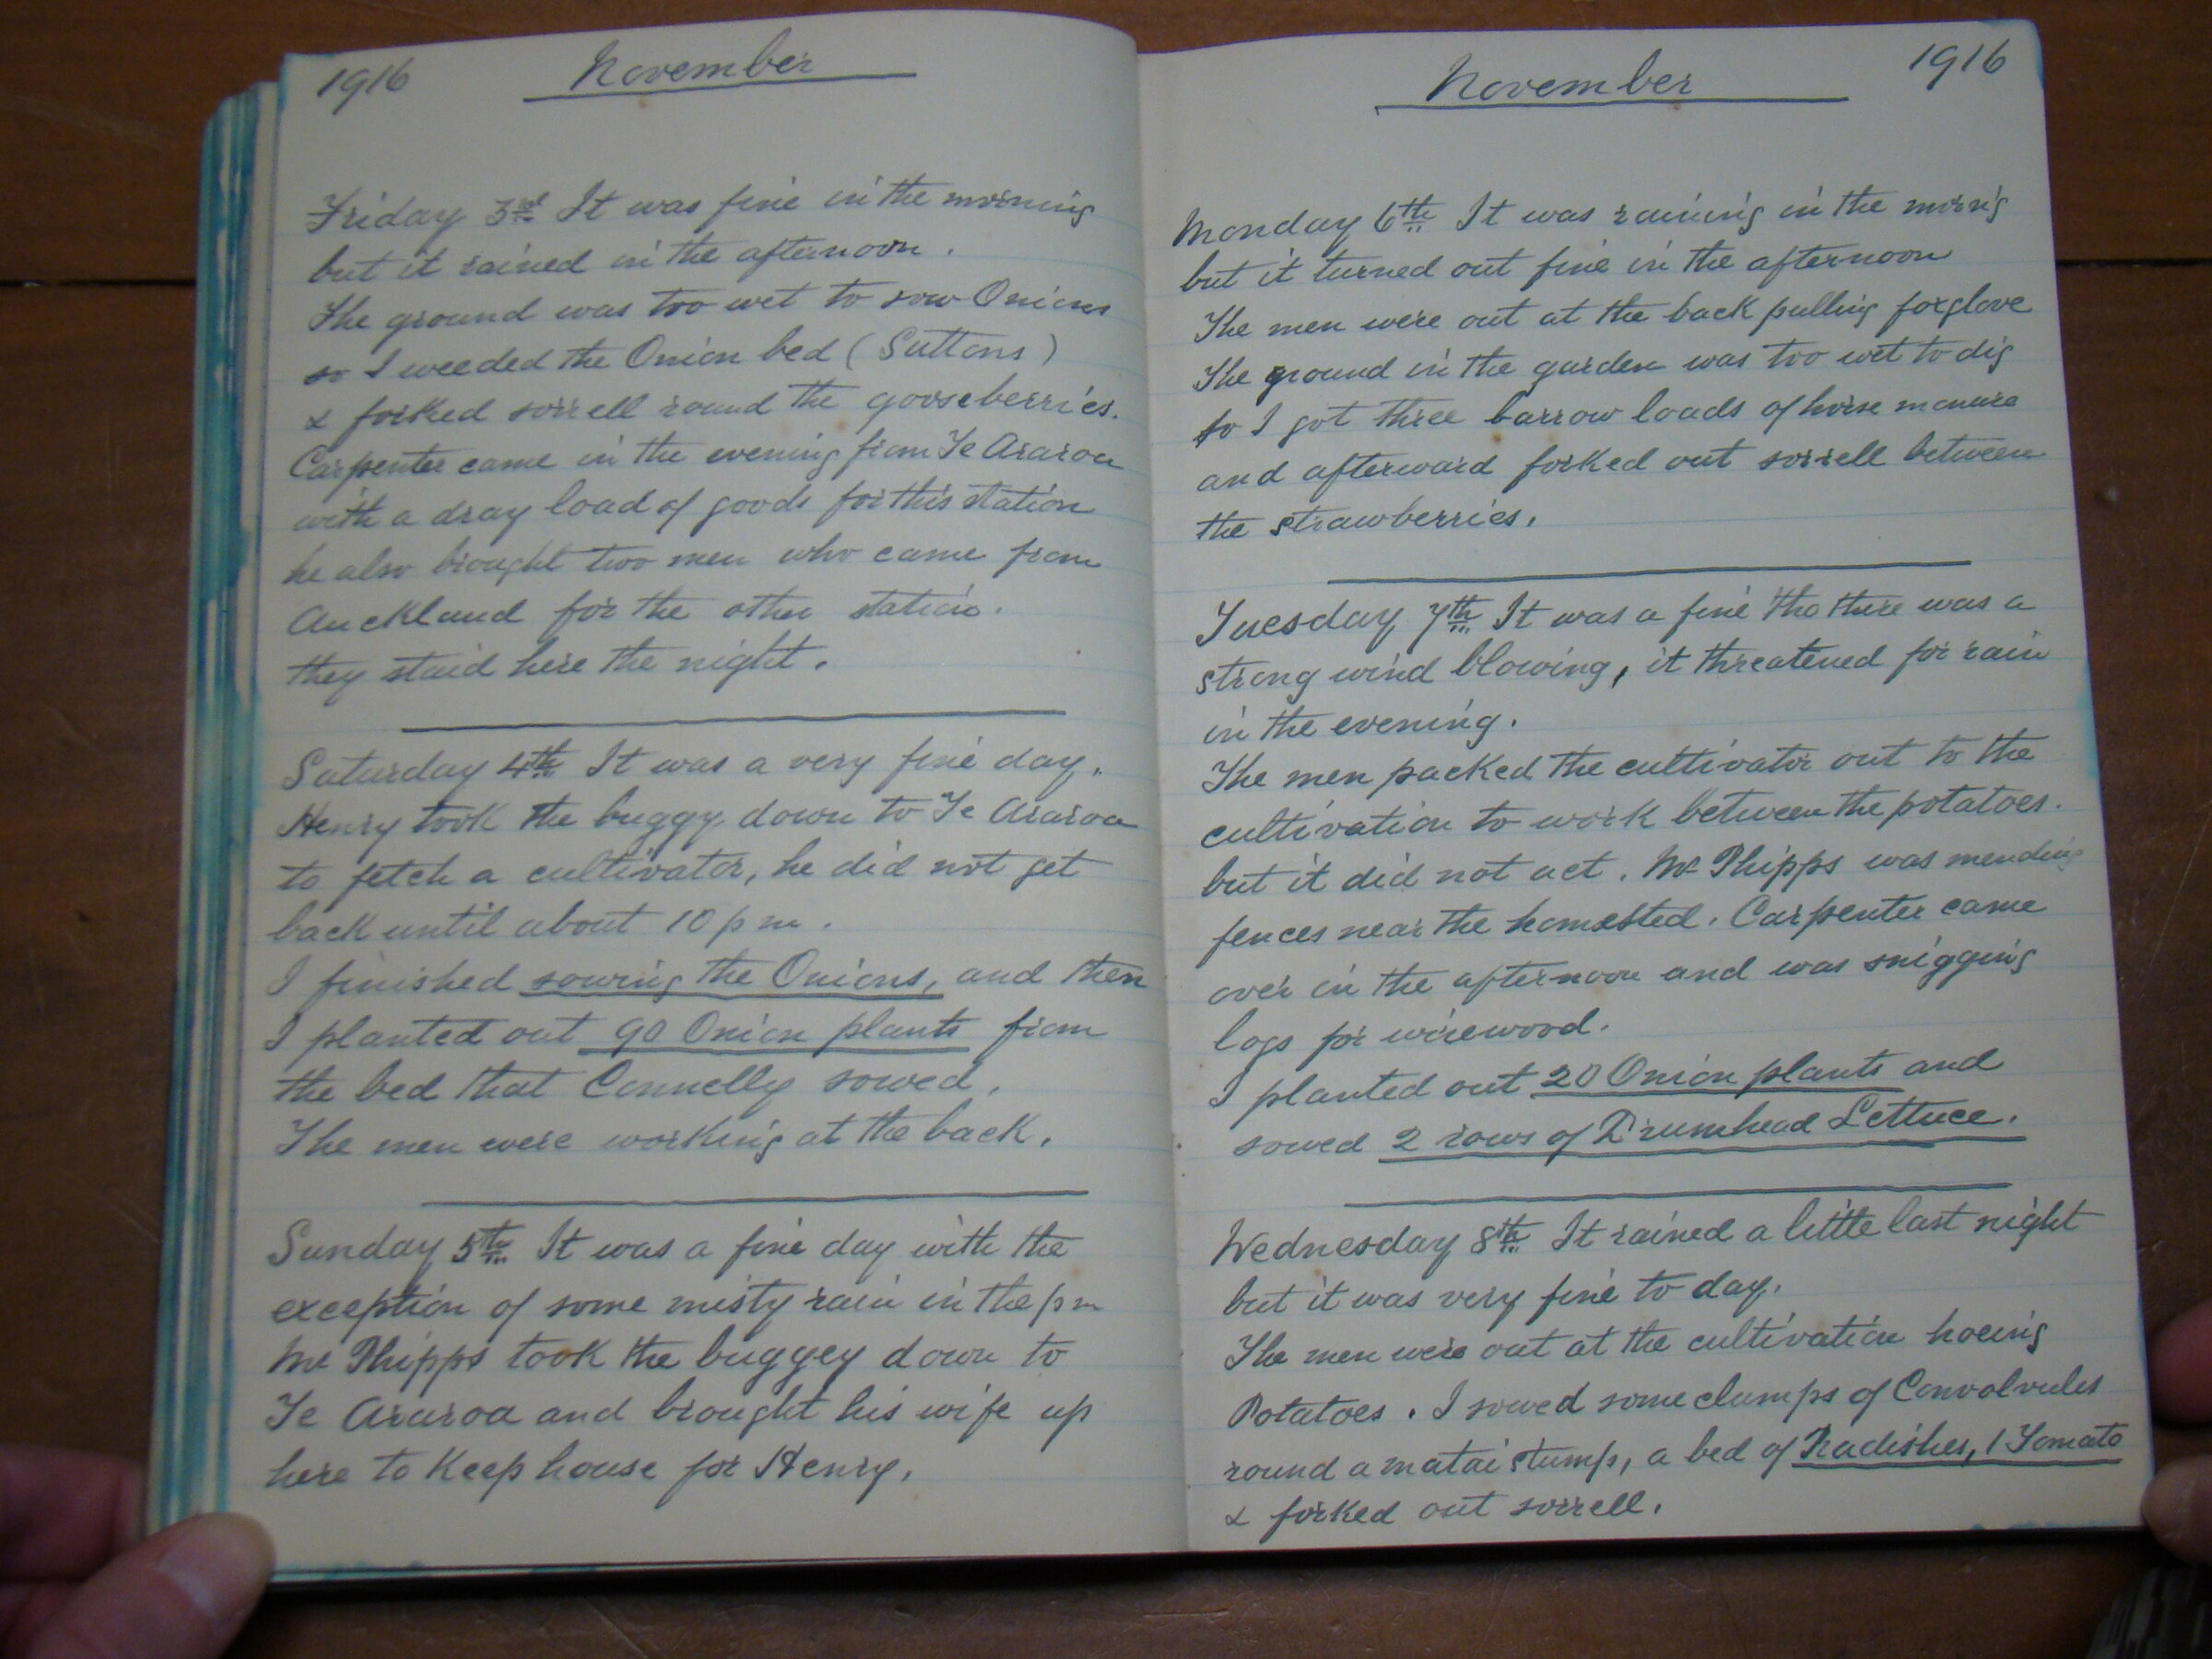 1916 November
Friday 3rd It was fine in the morning
but it rained in the afternoon.
The ground was too wet to sow Onions
so I weeded the Onion bed (Suttons)
& forked sorrell round the gooseberries.
Carpenter came in the evening from Te Araroa
with a dray load of goods for this station
he also brought two men who came from
Auckland for the other station.
they staid here the night.
Saturday 4th It was a very fine day.
Henry took the buggy down to Te Araroa
to fetch a cultivator, he did not get
back until about 10 pm.
I finished sowing the Onions, and then
I planted out 90 Onion plants from
the bed that Connelly sowed.
The men were working at the back.
Sunday 5th It was a fine day with the
exception of some misty rain in the pm
Mr Phipps took the buggey down to
Te Araroa and brought his wife up
here to Keep house for Henry.
November 1916
Monday 6th It was raining in the morng
but it turned out fine in the afternoon
The men were out at the back pulling foxglove
The ground in the garden was too wet to dig
so I got three barrow loads of horse manure
and afterward forked out sorrell between
the strawberries.
Tuesday 7th It was a fine tho there was a
strong wind blowing, it threatened for rain
in the evening.
The men packed the cultivator out to the
cultivation to work between the potatoes.
but it did not act. Mr Phipps was mending
fences near the homested. Carpenter came
over in the afternoon and was snigging
logs for wirewood.
I planted out 20 Onion plants and
sowed 2 rows of Drumhead Lettuce.
Wednesday 8th It rained a little last night
but it was very fine to day.
The men were out at the cultivation hoeing
Potatoes. I sowed some clumps of Convolvules
round a matai stump, a bed of Radishes, 1 Tomato
& forked out sorrell.